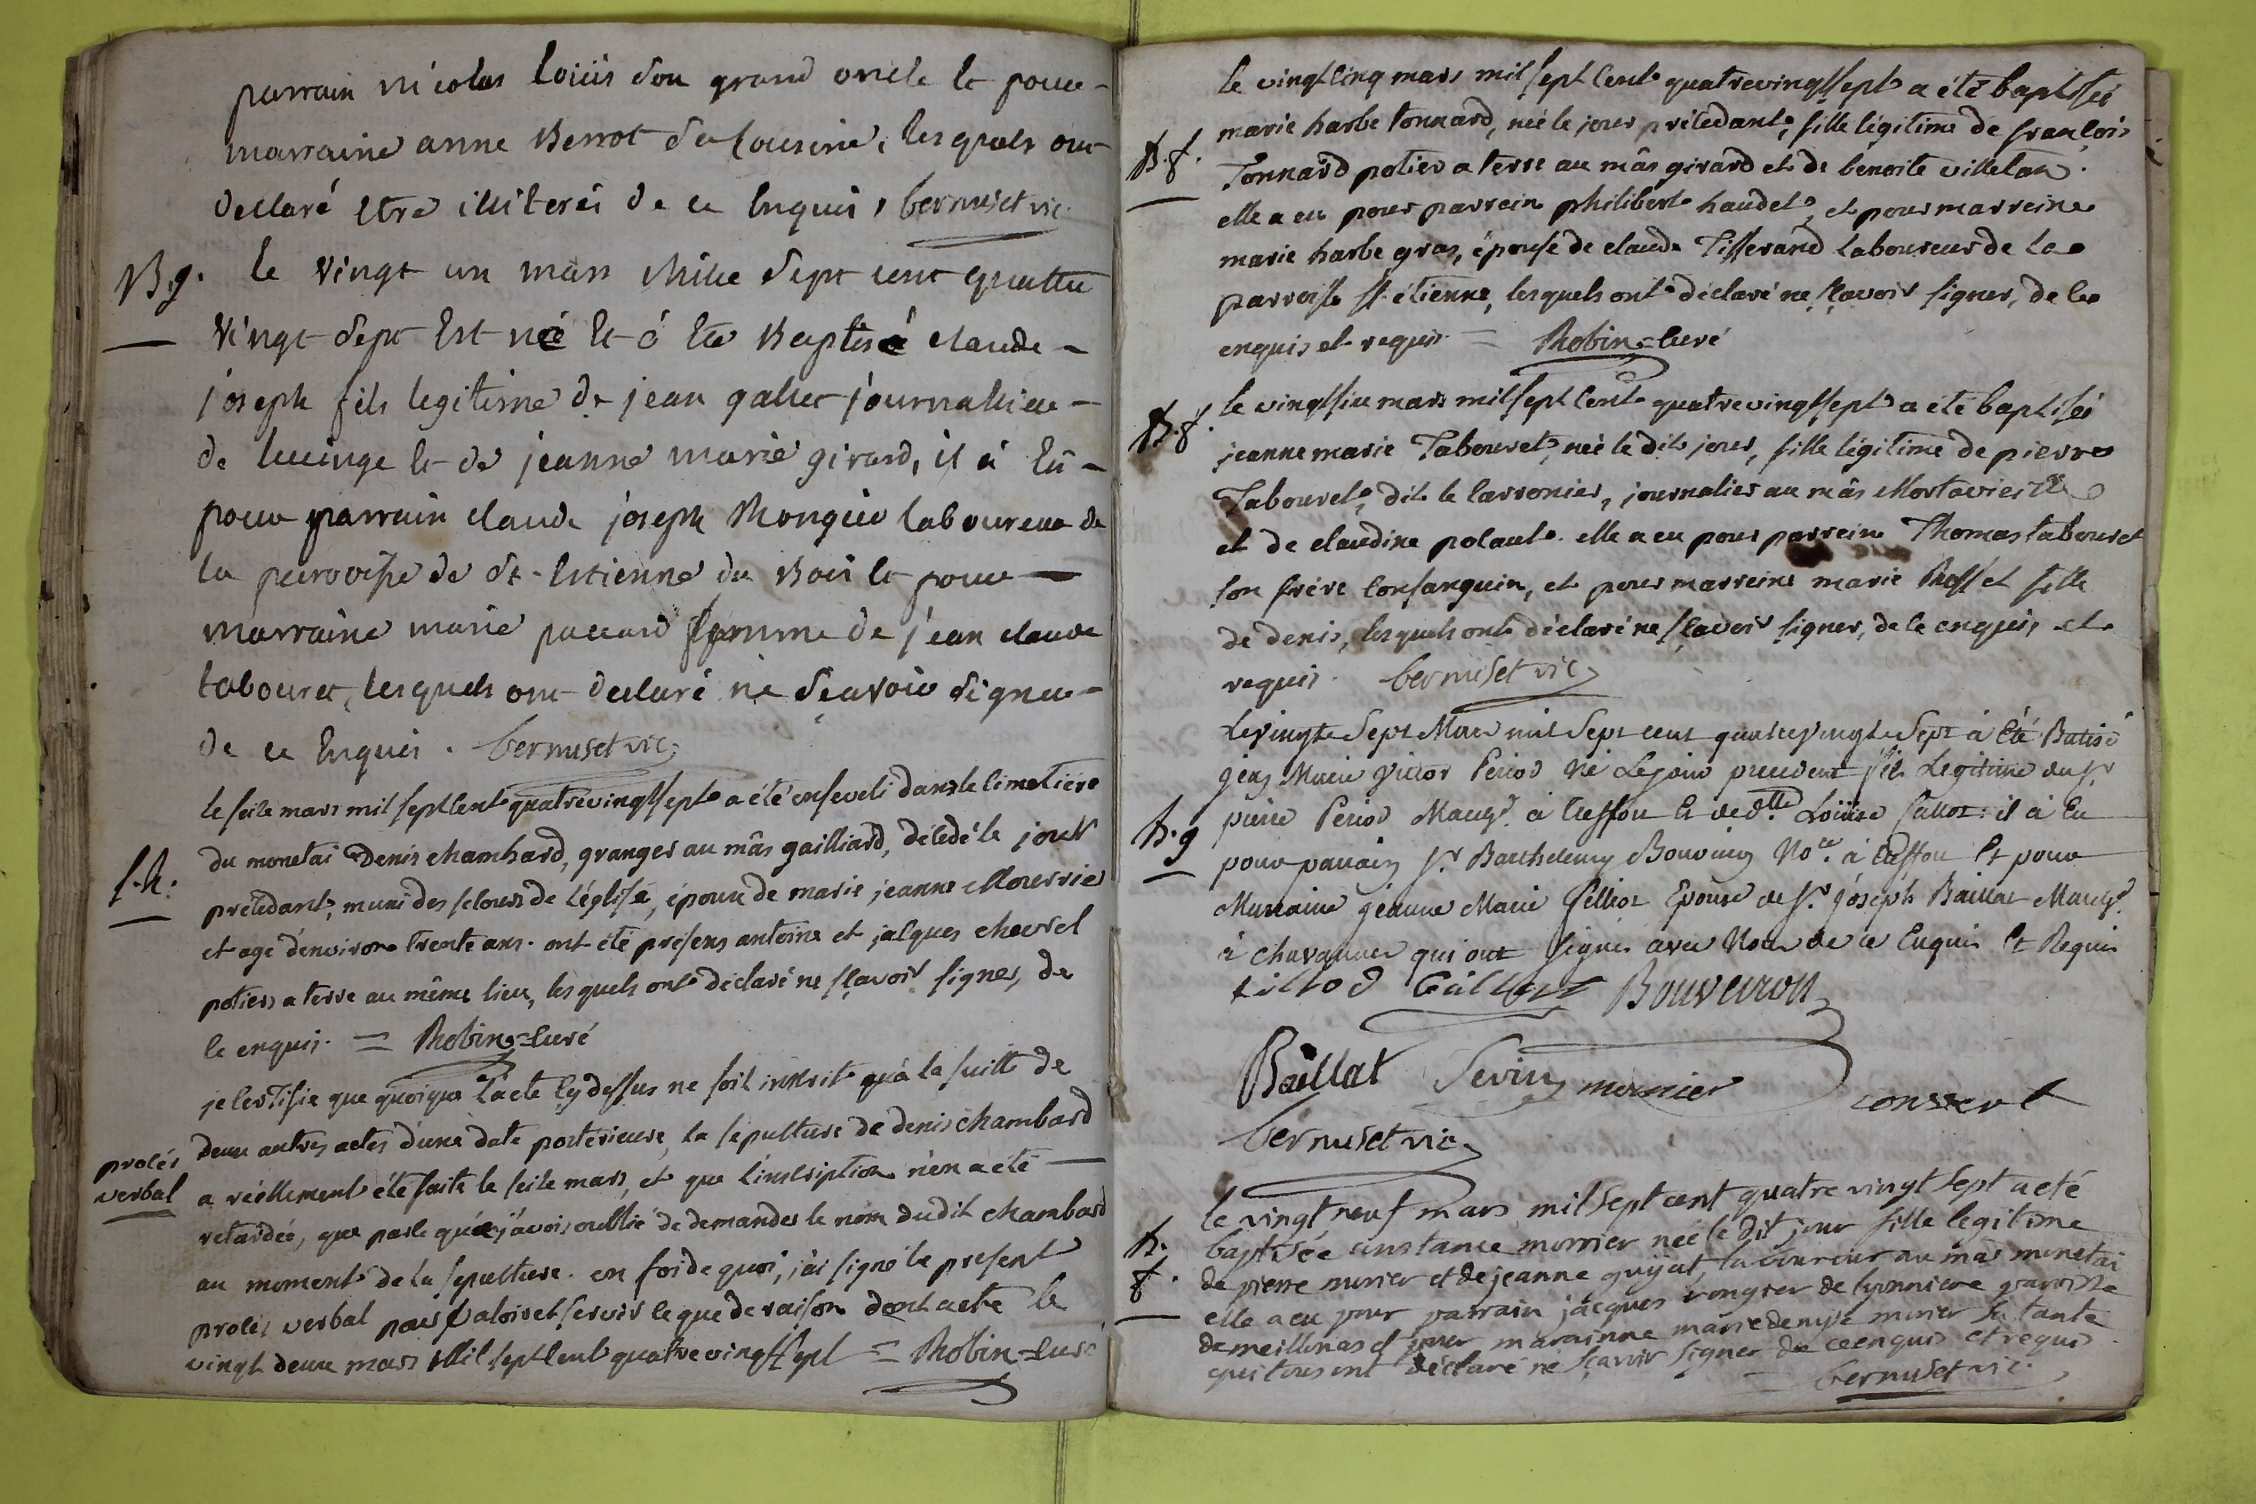 parrain nicolas loüis son grand oncle et pour
marraine anne Berrot sa cousine, lesquels ont
declaré etre illiterés de ce enquis, bernuset vic
B. g. le vingt un mars mille sept cent quattre
vingt sept est né et à été Baptisé claude
joseph fils legitime de jean gallet journallier
de lucinge et de jeanne marie girard, il à eû
pour parrain claude joseph Mongier laboureur de
la parroisse de st. estienne du Bois et pour
marraine marie paccard femme de jean claude
tabouret, lesquels ont declaré ne sçavoir signer
de ce enquis. bernuset vic
le seize mars mil sept cent quatrevingt sept a été enseveli dans le cimetière
s. h. du monetai Denis chambard, granger au mâs gailliard, décédé le jour
précédant, muni des secours de l'église, époux de marie jeanne Mourrier
et agé d'environ trente ans. ont été présens antoine et jacques chevrel
potiers a terre au même lieu, lesquels ont déclaré ne sçavoir signer, de
ce enquis. = Robin curé
je certifie que quoique l'acte cy dessus ne soit inscrit qu'à la suitte de
deux autres actes d'une date postérieure, la sépulture de denis chambard
procés verbal a réellement été faite le seize mars, et que l'inscription n'en a été
retardée, que parce que j'avois oublié de demander le nom dudit chambard
au moment de la sepulture. en foi de quoi, j'ai signé le présent
procés verbal pour valoir et servir ce que de raison dont acte le
vingt deux mars mil sept cent quatrevingt sept = Robin curé
le vingt cinq mars mil sept cent quatrevingt sept a été baptisée
B. f. marie barbe tonnard, née le jour précédant, fille légitime de françois
Tonnard potier a terre au mâs girard et de benoite villetan.
elle a eu pour parrein philibert haudet, et pour marreine
marie barbe gras, épouse de claude Tisserand laboureur de la
parroisse st. étienne, lesquels ont déclaré ne sçavoir signer, de ce
enquis et requis = Robin curé
B. f. le vingt six mars mil sept cent quatrevingt sept a été baptisée
jeanne marie Tabouret, née le dit jour, fille légitime de pierre
Tabouret, dit le larronier, journalier au mâs Mortavieille
et de claudine polaut. elle a eu pour parrein Thomas tabouret
son frère consanguin, et pour marreine marie Rosset fille
de denis, lesquels ont déclaré ne sçavoir signer, de ce enquis, et
requis. bernuset vic
Le vingte sept Mars mil sept cent quatrevingte sept à été Batisé
jean Marie Victor Period né Le jour precedent fils Legitime du sr
B. g pierre Period March. à treffort et de dlle Loüise Cullot: il à Eu
pour parrain sr. Barthelemy Bouveiron Nore. à treffort Et pour
Marraine jeanne Marie pelliot Epouse de sr. joseph Baillat March.
à chavannes qui ont signé avec Nous de ce Enquis Et Requis
Bouveiron
Baillat Sevin monnier convert
bernuset vic
le vingt neuf mars mil sept cent quatre vingt sept a eté
B. f. baptisée constance monier née le dit jour fille legitime
de pierre monier et de jeanne guyat, laboureur au mas monetai
elle a eu pour parrain jacques mongier de lyonniere parroisse
de meillonas et pour marainne marie denyse monier sa tante
qui tous ont déclaré ne sçavoir signer de ce enquis et requis.
bernuset vic